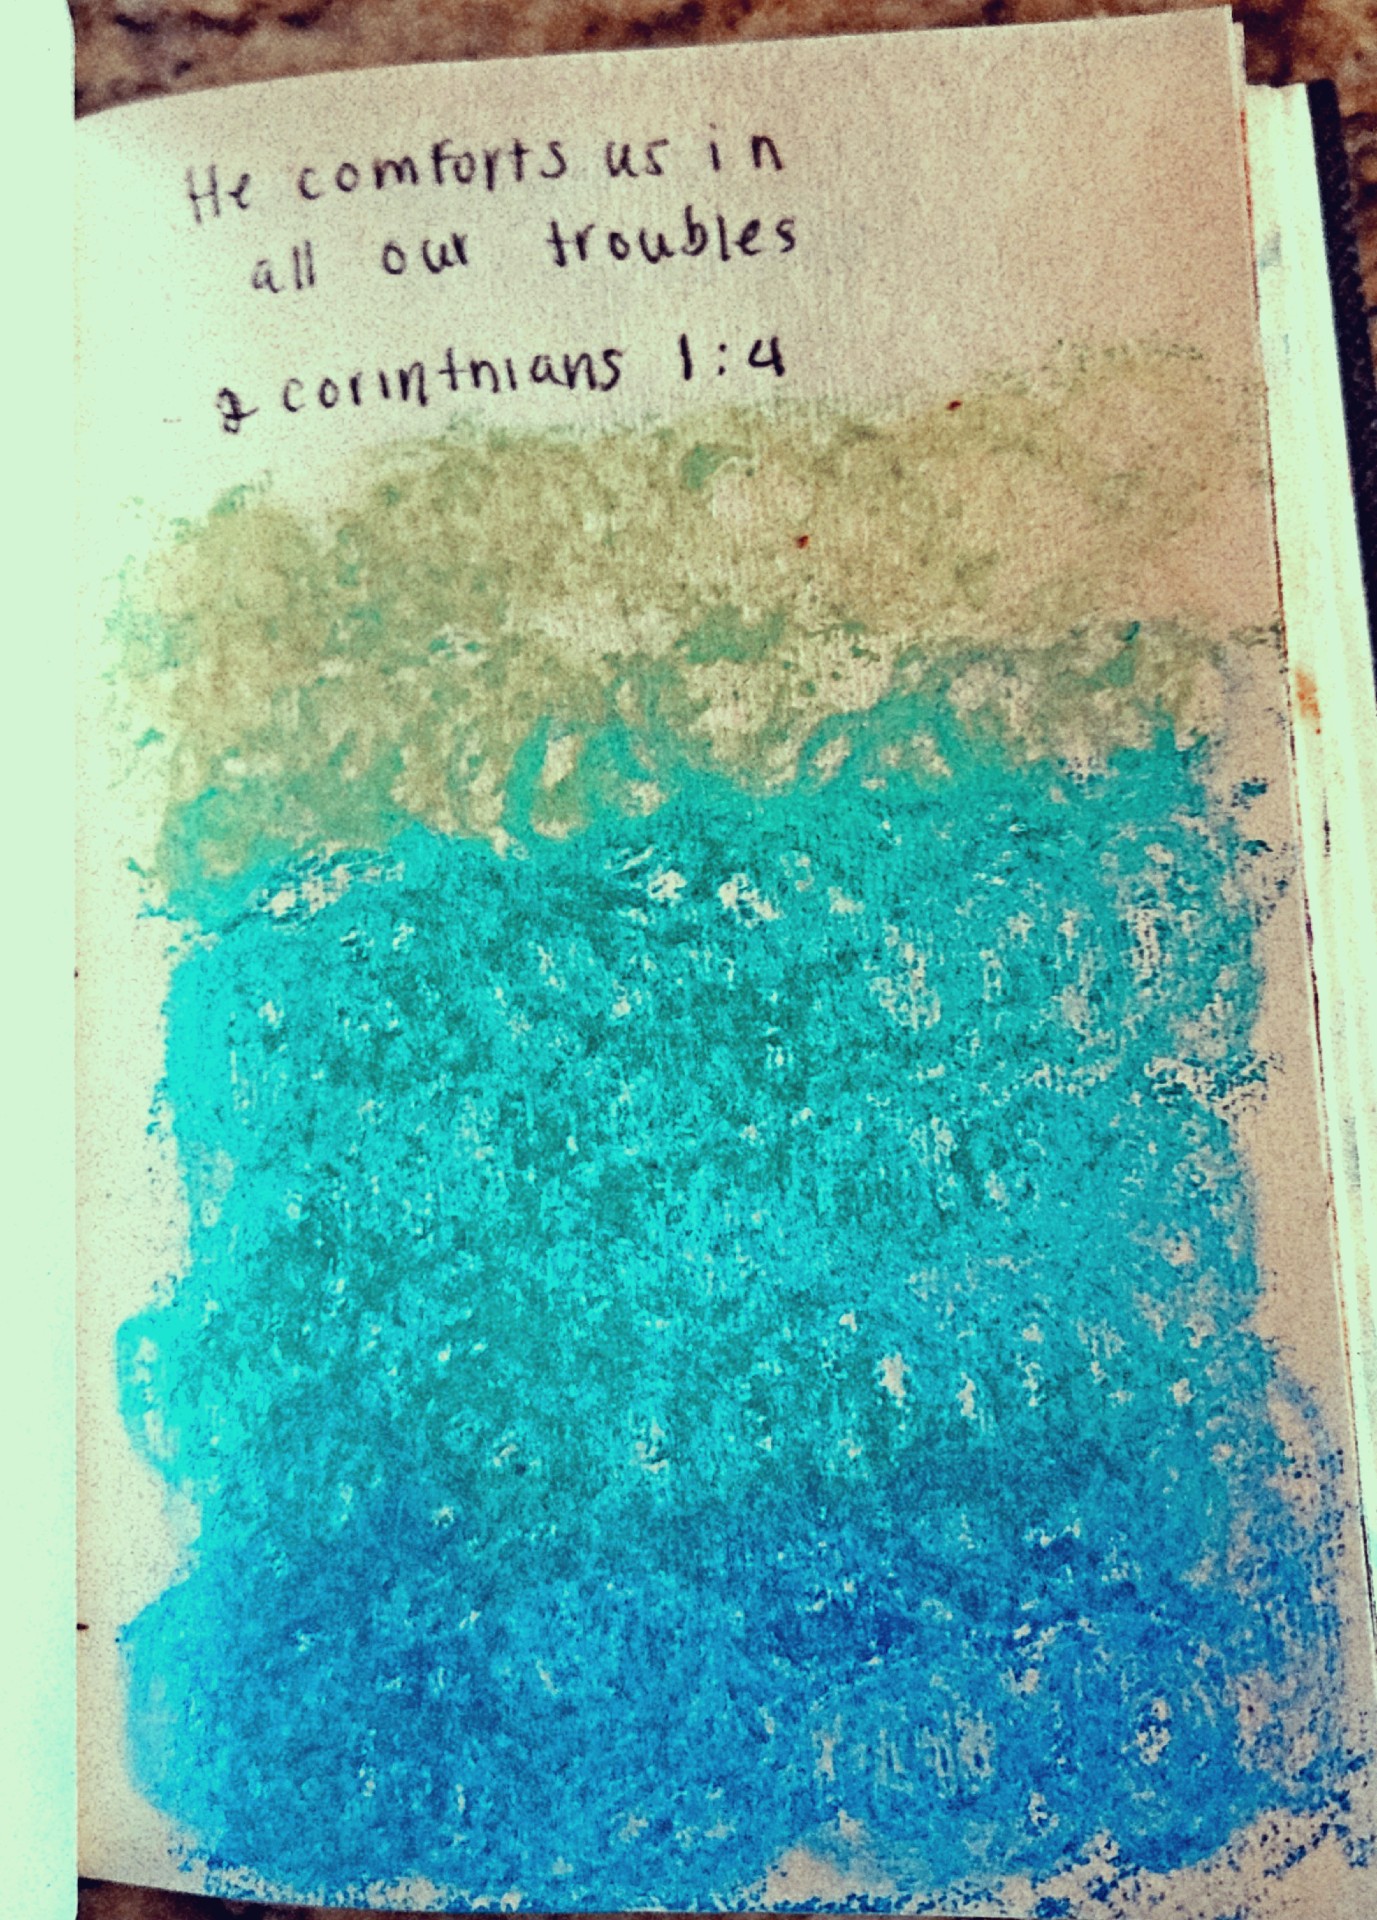 He comforts us in
all our troubles
2 corinthians 1:4